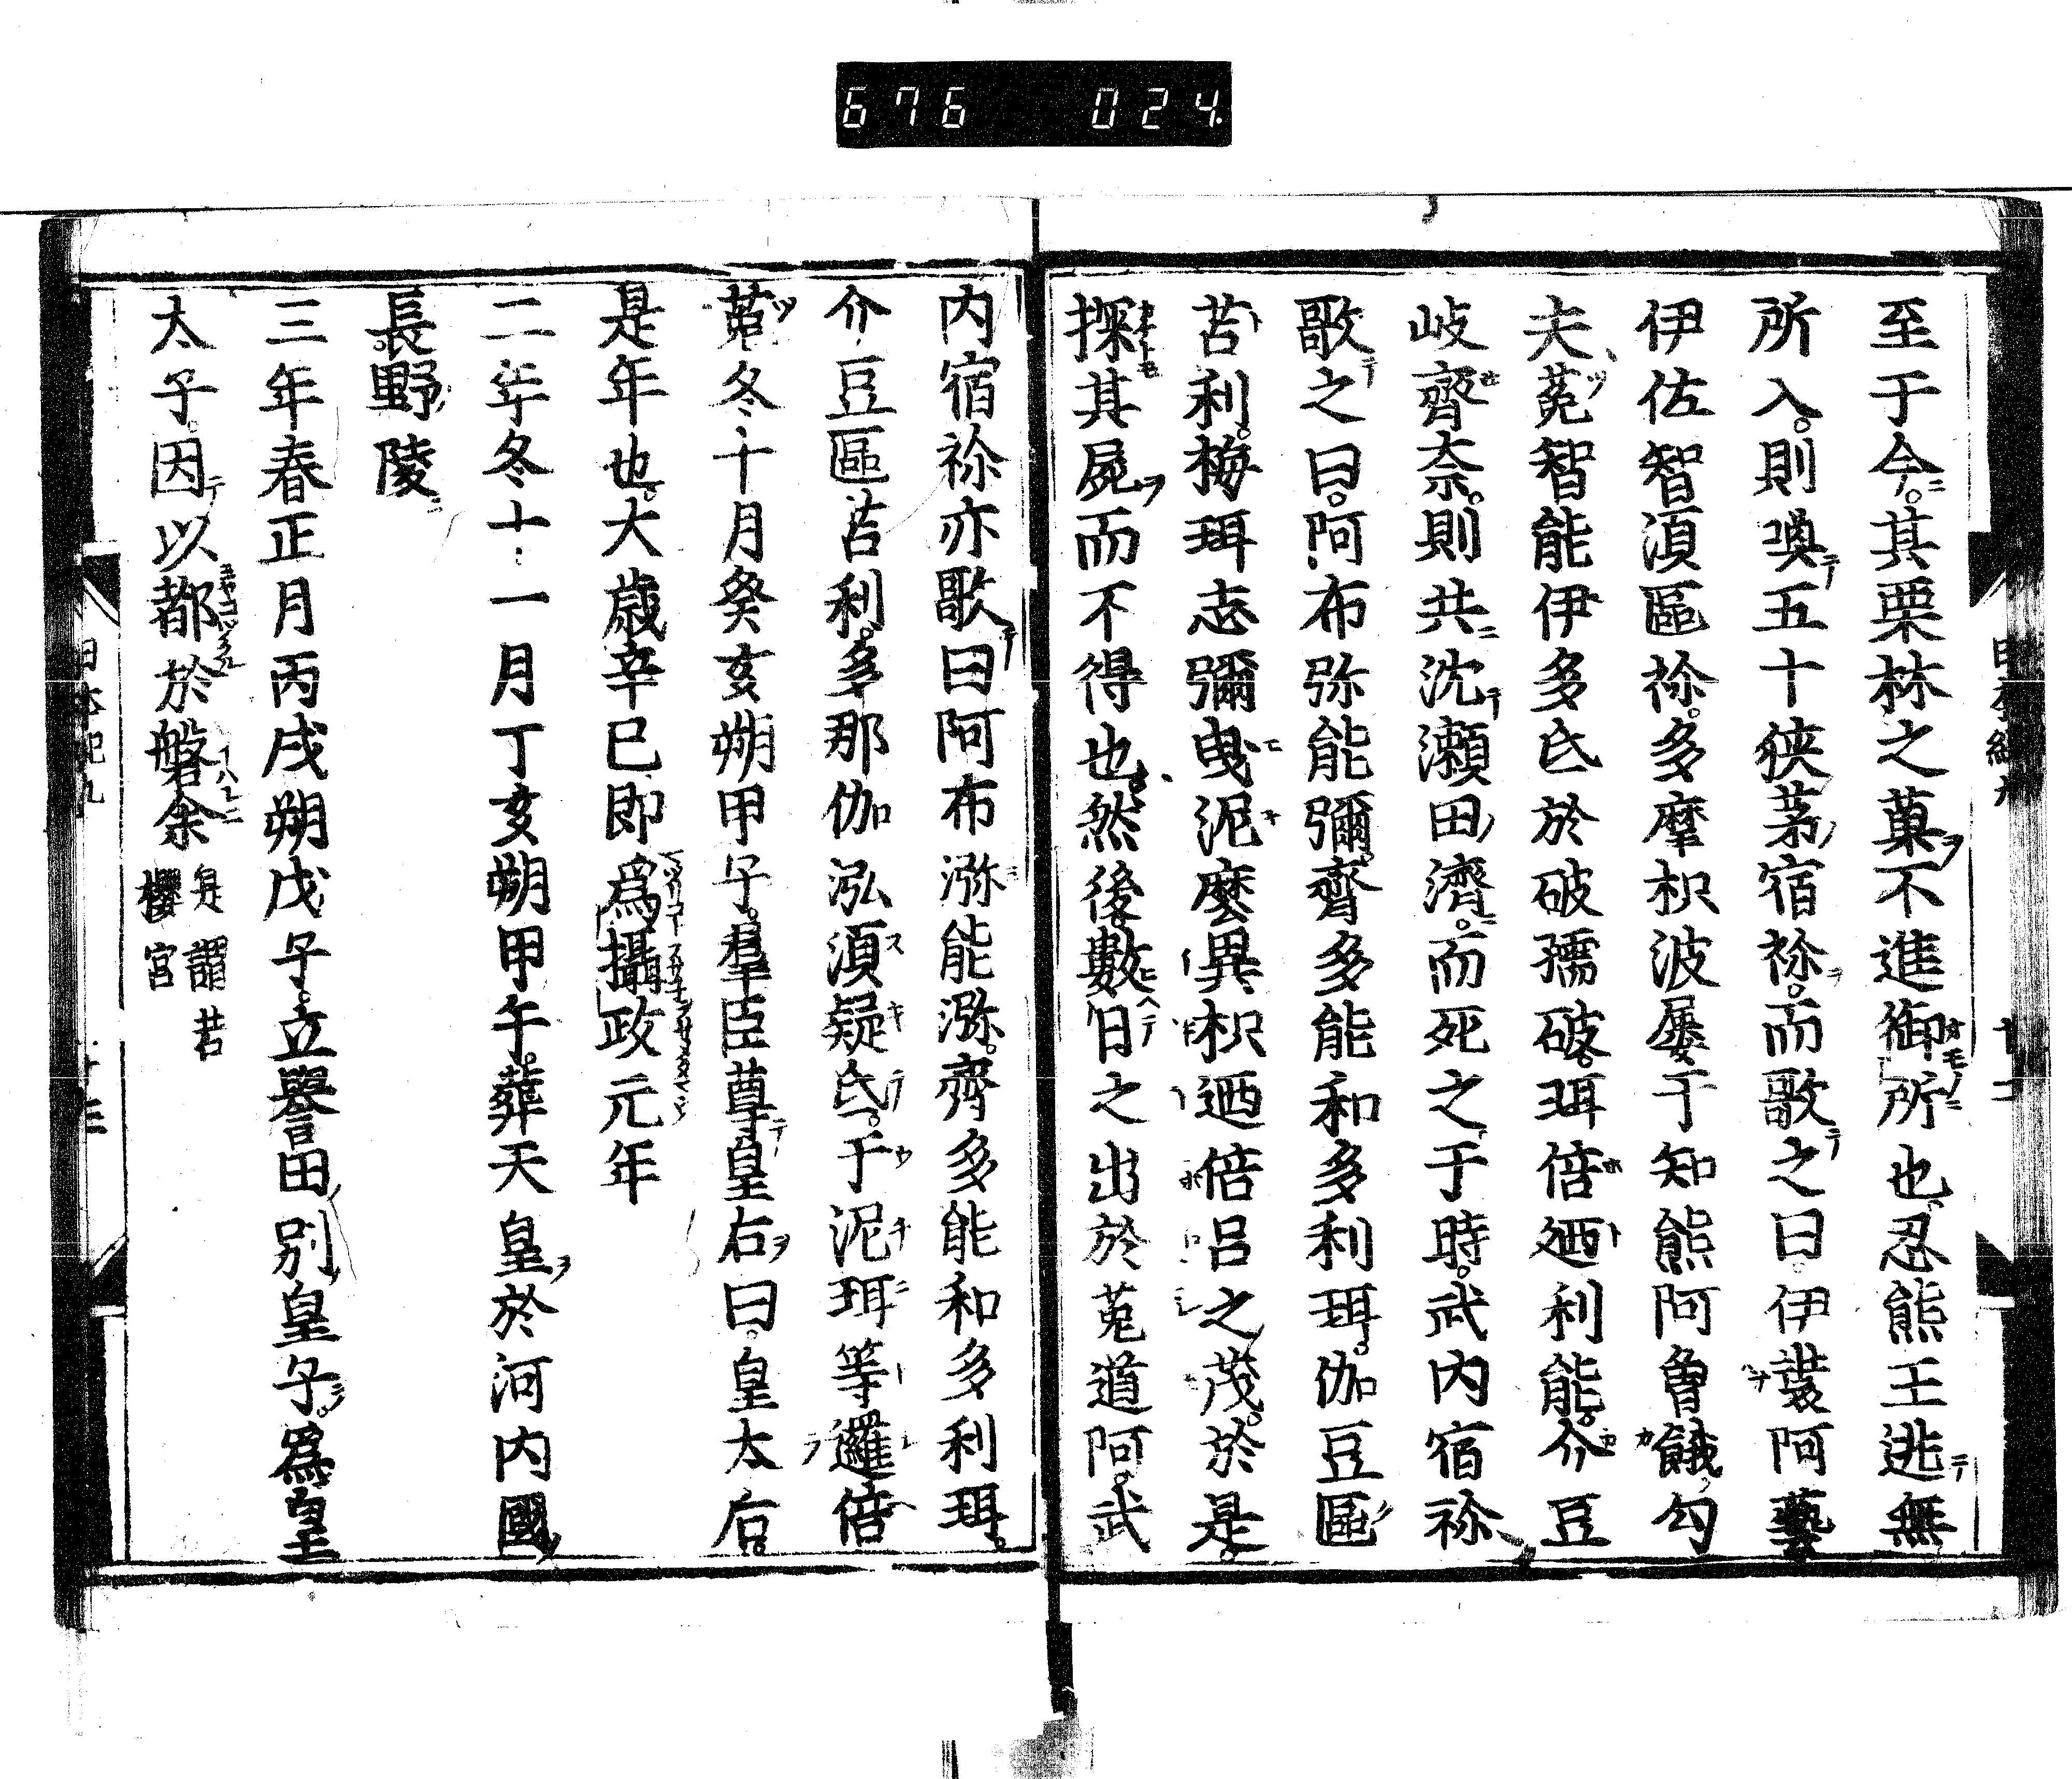 676 024
至于今。其栗林之菓不進御所也忍熊王逃無
所入。則喚五十狹茅宿祢。而歌之曰。伊裝阿藝
伊佐智須區祢。多摩枳波屢于知熊阿魯餓勾
夫菟智能伊多氐於破孺破。珥倍廼利能。介豆
岐齊奈。則共沈瀬田濟。而死之于時。武内宿祢
歌之曰。阿布弥能彌。齊多能和多利珥。伽豆區
苫利。梅珥志彌曳泥麼異枳廼倍呂之茂。於是。
探其屍而不得也然後。數日之出於菟道阿。武
内宿祢亦歌曰阿布瀰能瀰。齊多能和多利珥。
介豆區苫利。多那伽泓須疑氐。于泥珥等邏倍
菟冬十月癸亥朔甲子。羣臣尊皇右曰。皇太后。
是年也。大歳辛巳即爲攝政元年
二年冬十一月丁亥朔甲午。葬天皇於河内國
長野陵
三年春正月丙戌朔戊子。立譽田別皇子。爲皇
太子。因以都於磐余
是謂若
櫻宮